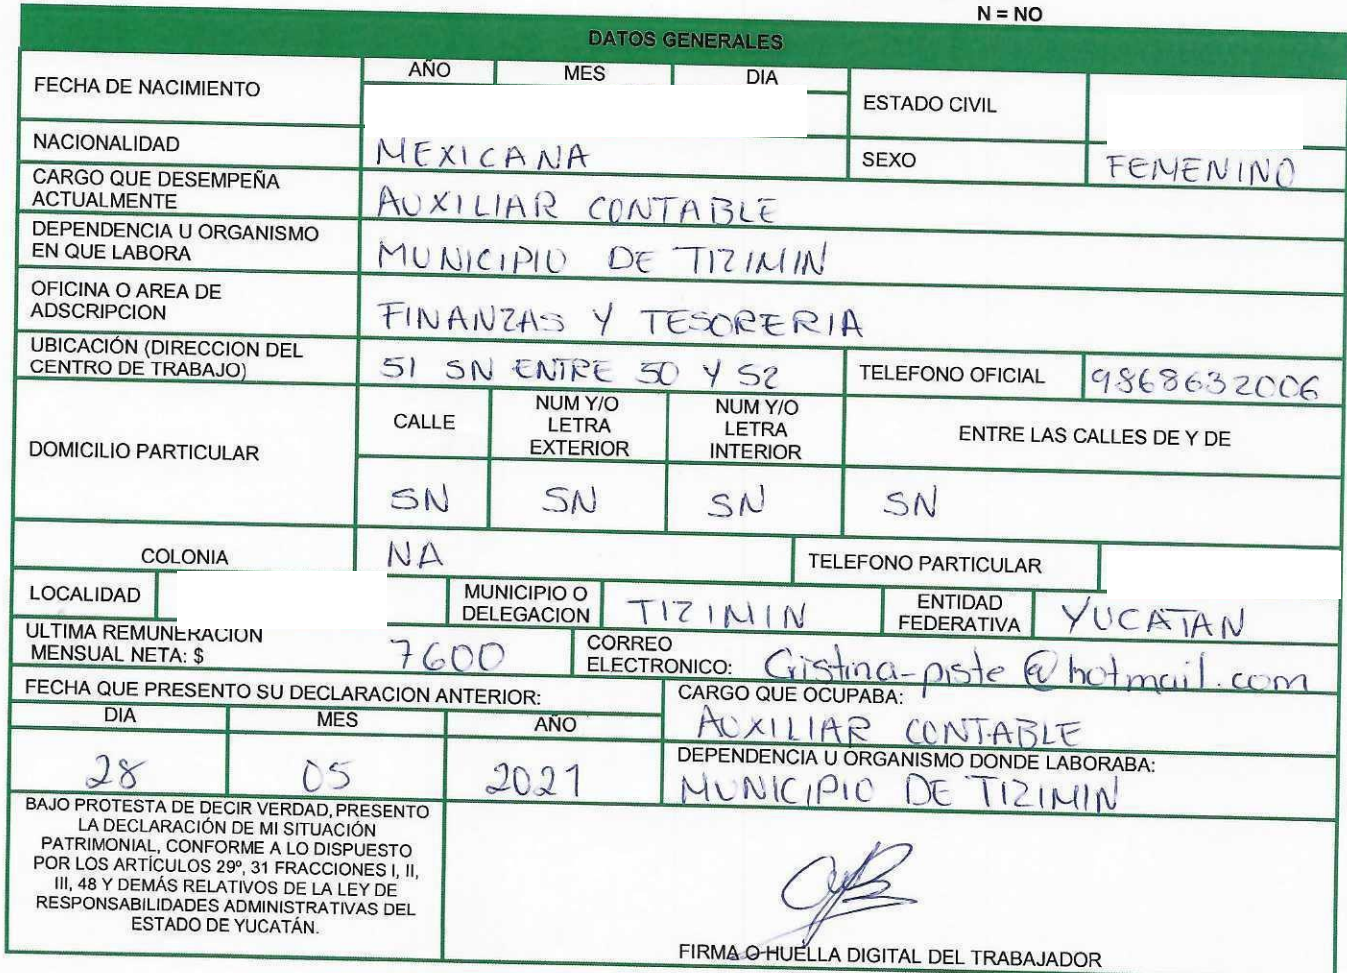 N = NO
DATOS GENERALES
FECHA DE NACIMIENTO
AÑO MES DIA
ESTADO CIVIL
NACIONALIDAD MEXICANA SEXO FEMENINO
CARGO QUE DESEMPEÑA
ACTUALMENTE
AUXILIAR CONTABLE
DEPENDENCIA U ORGANISMO
EN QUE LABORA
MUNICIPIO DE TIZIMIN
OFICINA O AREA DE
ADSCRIPCION
FINANZAS Y TESORERIA
UBICACIÓN (DIRECCION DEL
CENTRO DE TRABAJO)
51 SN ENTRE 50 Y 52 TELEFONO OFICIAL 9868632006
DOMICILIO PARTICULAR
CALLE
NUM Y/O
LETRA
EXTERIOR
NUM Y/O
LETRA
INTERIOR
ENTRE LAS CALLES DE Y DE
SN SN SN SN
COLONIA NA TELEFONO PARTICULAR
LOCALIDAD
MUNICIPIO O
DELEGACION
TIZIMIN
ENTIDAD
FEDERATIVA
YUCATAN
ULTIMA REMUNERACION
MENSUAL NETA: $
7600
CORREO
ELECTRONICO:
Cristina-piste@hotmail.com
FECHA QUE PRESENTO SU DECLARACION ANTERIOR:
DIA MES AÑO
28 05 2021
CARGO QUE OCUPABA:
AUXILIAR CONTABLE
DEPENDENCIA U ORGANISMO DONDE LABORABA:
MUNICIPIO DE TIZIMIN
BAJO PROTESTA DE DECIR VERDAD, PRESENTO
LA DECLARACIÓN DE MI SITUACIÓN
PATRIMONIAL, CONFORME A LO DISPUESTO
POR LOS ARTÍCULOS 29º, 31 FRACCIONES I, II,
III, 48 Y DEMÁS RELATIVOS DE LA LEY DE
RESPONSABILIDADES ADMINISTRATIVAS DEL
ESTADO DE YUCATÁN.
FIRMA O HUELLA DIGITAL DEL TRABAJADOR